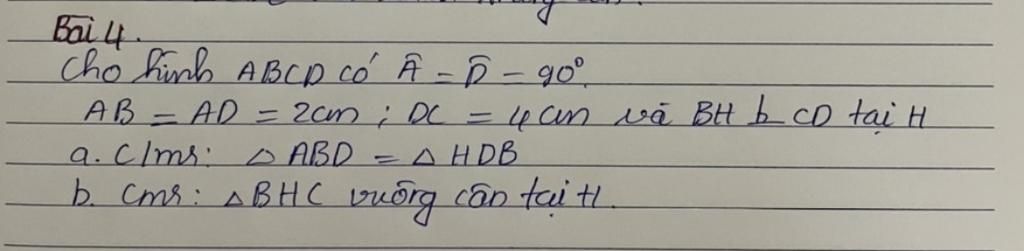 Bài 4.
Cho hình ABCD có Â = D̂ = 90°.
AB = AD = 2cm ; DC = 4cm và BH ⊥ CD tại H
a. C/ms: △ ABD = △ HDB
b. Cms: △BHC vuông cân tại H.